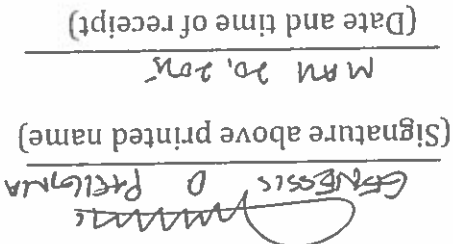 GENESSIS O PAELGMA
(Signature above printed name)
MAY 20, 2015
(Date and time of receipt)